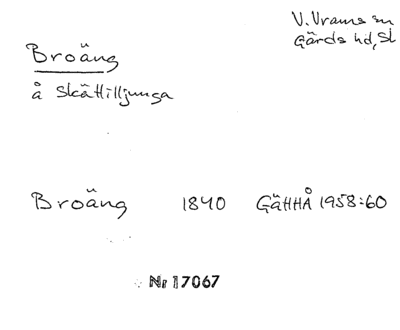 Broäng
V. Vrams sn
Gärds hd, Sk
å Skättilljunga
Broäng 1840 GÄHHÅ 1958:60
Nr 17067